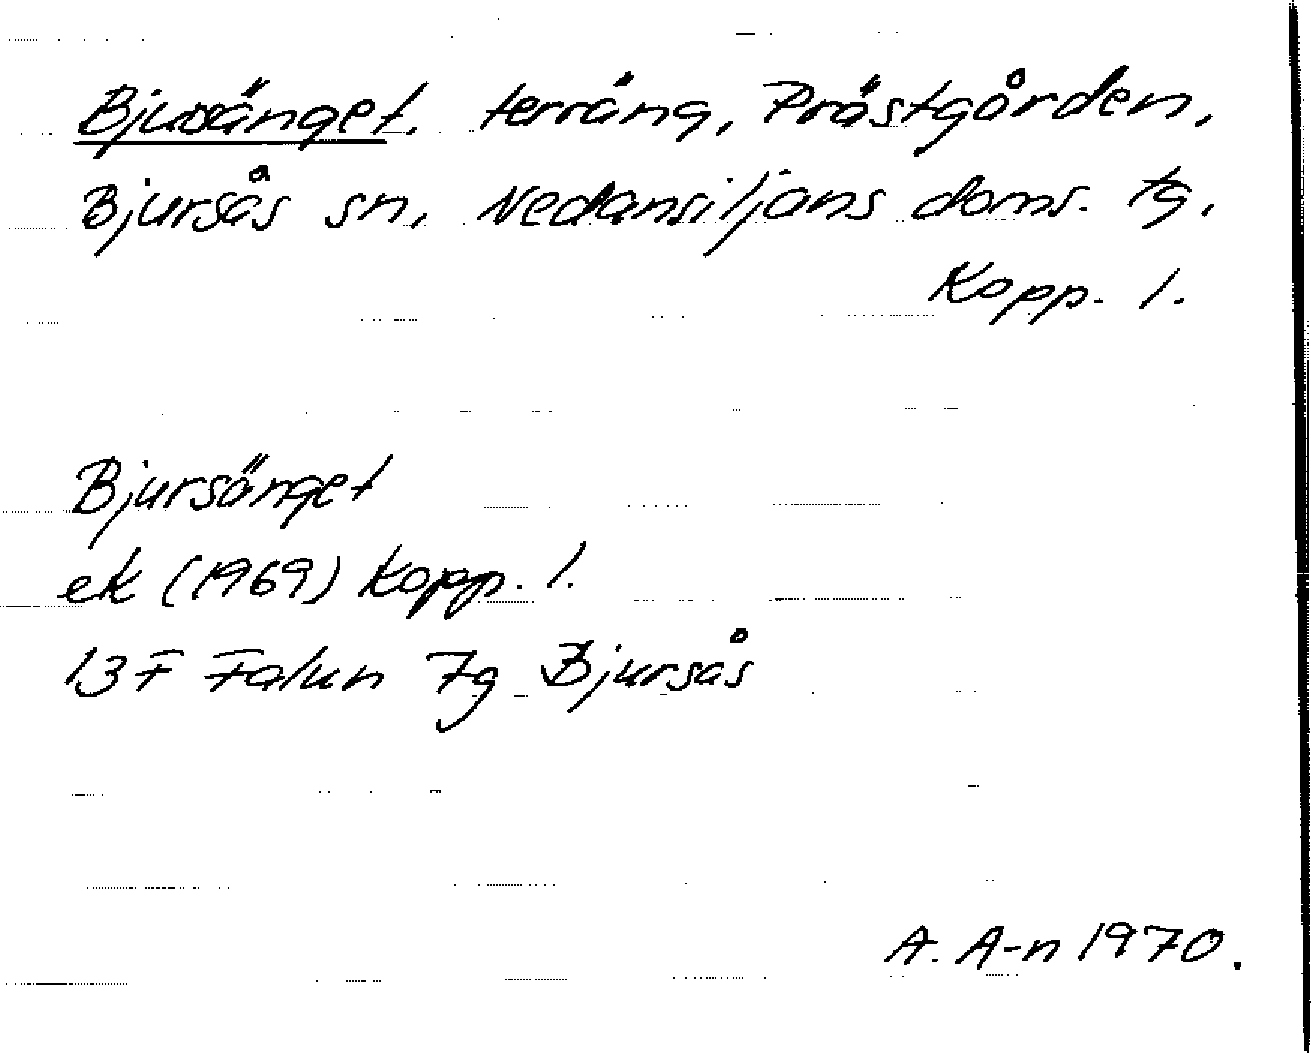 Bjursänget, terräng, Prästgården,
Bjursås sn, Nedansiljans doms. tg,
Kopp. l.
Bjursänget
ek (1969) Kopp. l.
13F Falun 7g Bjursås
A. A-n 1970.